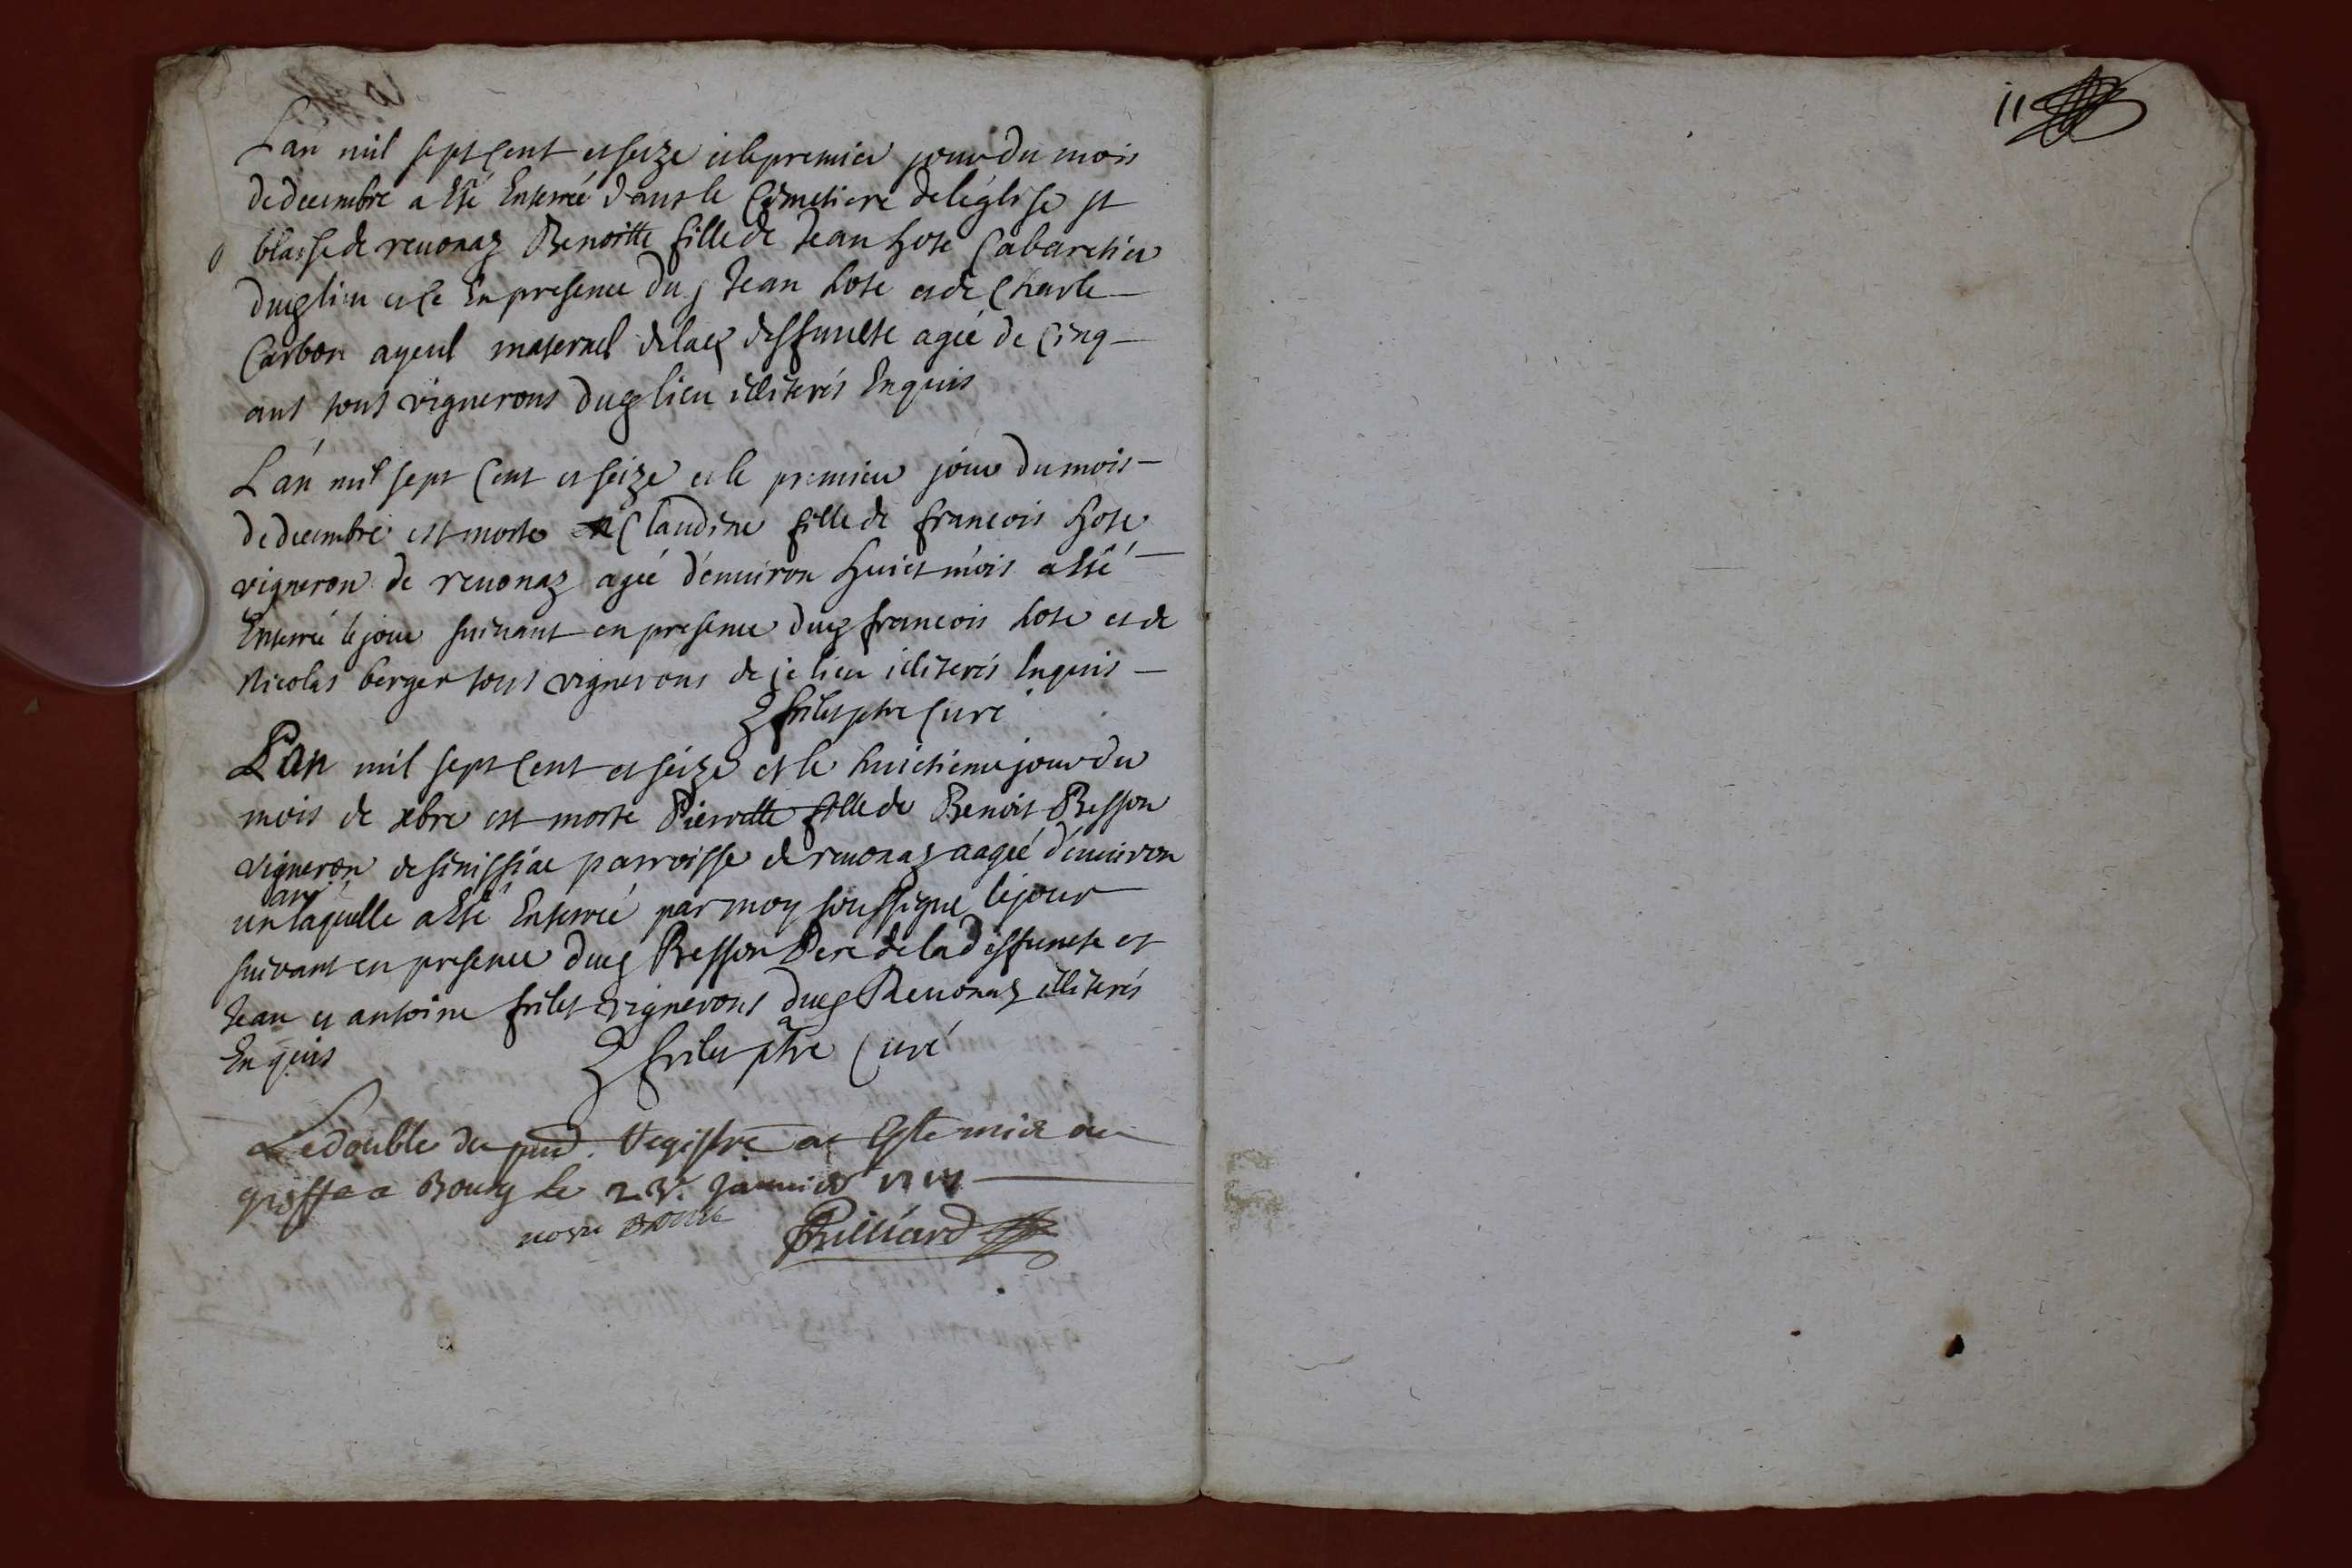 L'an mil sept Cent et seize et le premier jour du mois
de decembre a esté Enterrée dans le Cimetiere de léglise st
blaise de reuonaz Benoitte fille de Jean hote Cabaretier
dud lieu et ce En presence dud Jean hote et de Charle
Carbon ayeul maternel de lad deffuncte agée de Cinq
ans tous vignerons dud lieu illiterés Enquis
L'an mil sept Cent et seize et le premier jour du mois
de decembre est morte Claudine fille de francois hote
vigneron de reuonaz agée d'enuiron huict mois a esté
Enterrée le jour suiuant en presence dud francois hote et de
Nicolas berger tous vignerons de ce lieu illiterés Enquis
frilet ptre Curé
L'an mil sept Cent et seize et le huictieme jour du
mois de xbre est morte Pierrette fille de Benoit Besson
vigneron de sinissiac parroisse de reuonaz aagée d'enuiron
un an laquelle a esté Enterrée par moy soussigné le jour
suivant en presence dud Besson Pere de la deffuncte et
Jean et antoine frilet vignerons dud Reuonaz illiterés
Enquis frilet ptre Curé
Le double du pnt Registre a Esté mis au
greffe a Bourg le 23. Januier
Brilliard
11